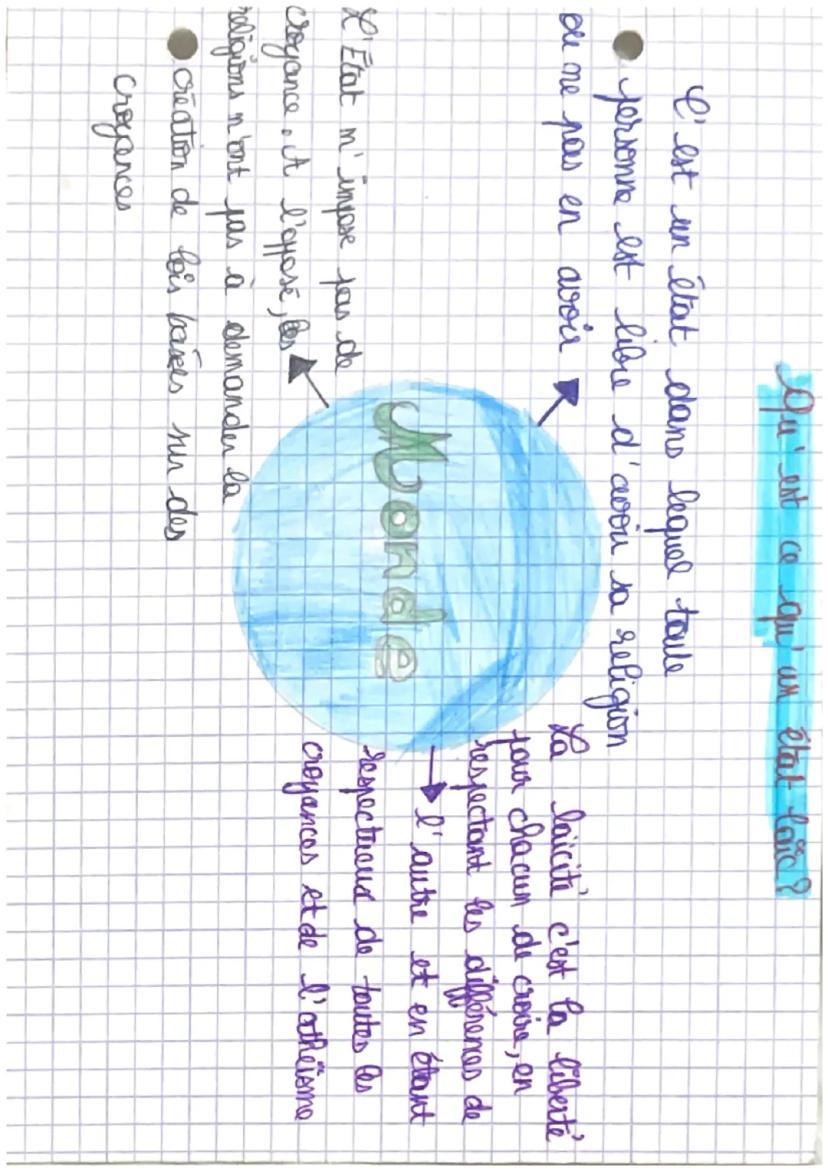 Qu'est ce qu'un état laïc?
C'est un état dans lequel toute
personne est libre d'avoir sa religion
ou ne pas en avoir
La laïcité c'est la liberté
pour chacun de croire, en
respectant les différences de
l'autre et en étant
respectueux de toutes les
croyances et de l'athéisme
Monde
L'État n'impose pas de
croyance. A l'opposé, les
religions n'ont pas à demander la
création de lois basées sur des
croyances